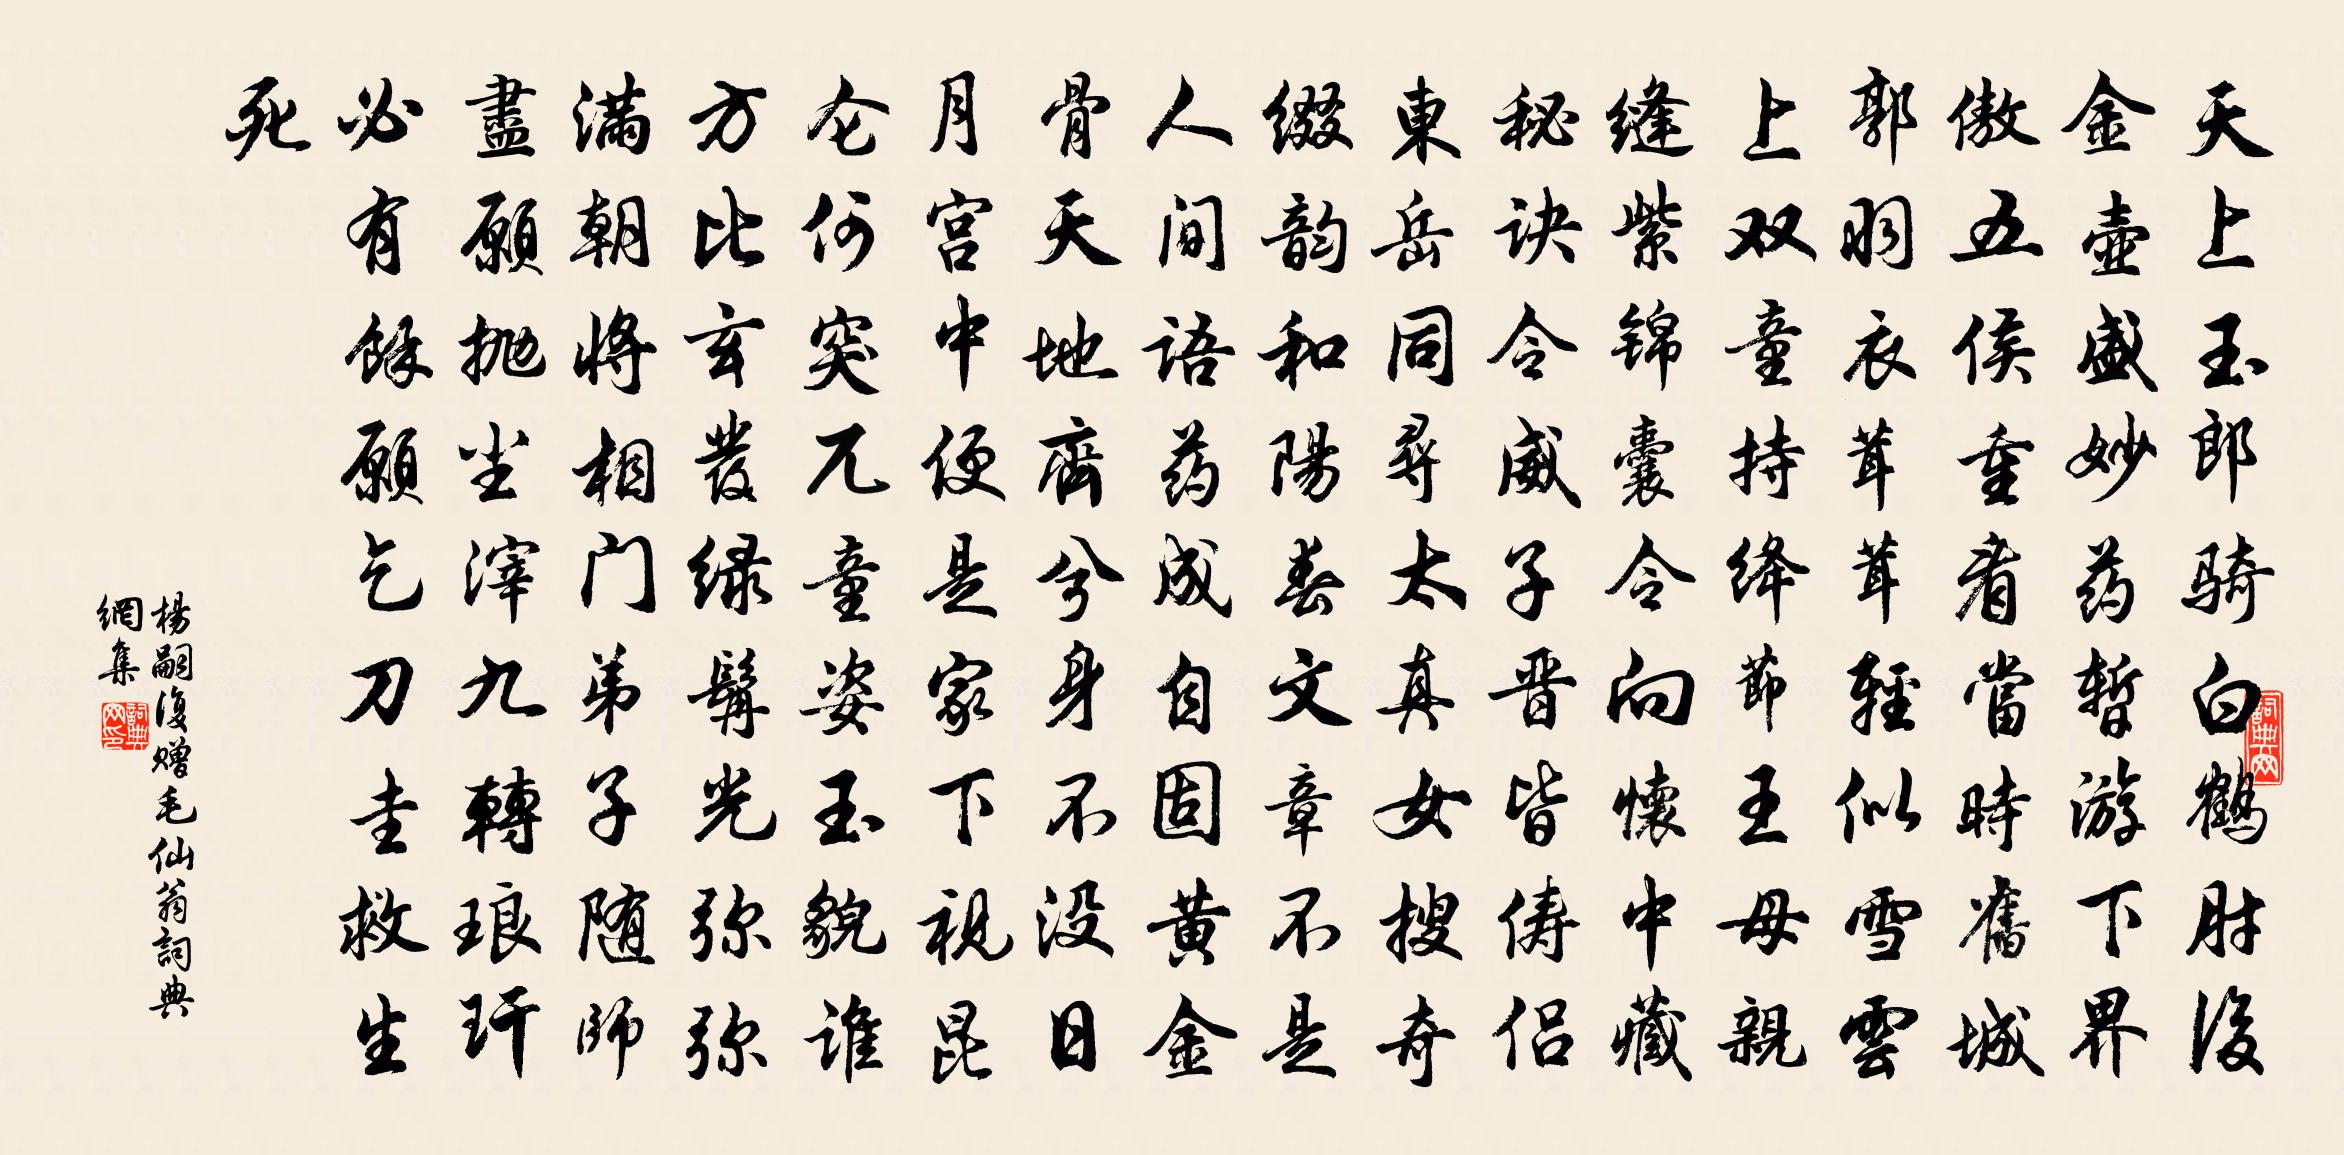 天上玉郎骑白鶴肘後
金壺盛妙药暫游下界
傲五侯重看當時舊城
郭羽衣茸茸輕似雪雲
上双童持绛節王母親
缝紫锦囊令向懷中藏
秘诀令威子晋皆俦侣
東岳同尋太真女搜奇
缀韵和陽春文章不是
人间语药成自固黄金
骨天地齊兮身不没日
月宫中便是家下視昆
仑何突兀童姿玉貌谁
方比玄發绿鬓光弥弥
满朝將相门弟子随師
盡願抛尘滓九轉琅玕
必有餘願乞刀圭救生
死
楊嗣復赠毛仙翁詞典
網集
詞典网
詞典网印